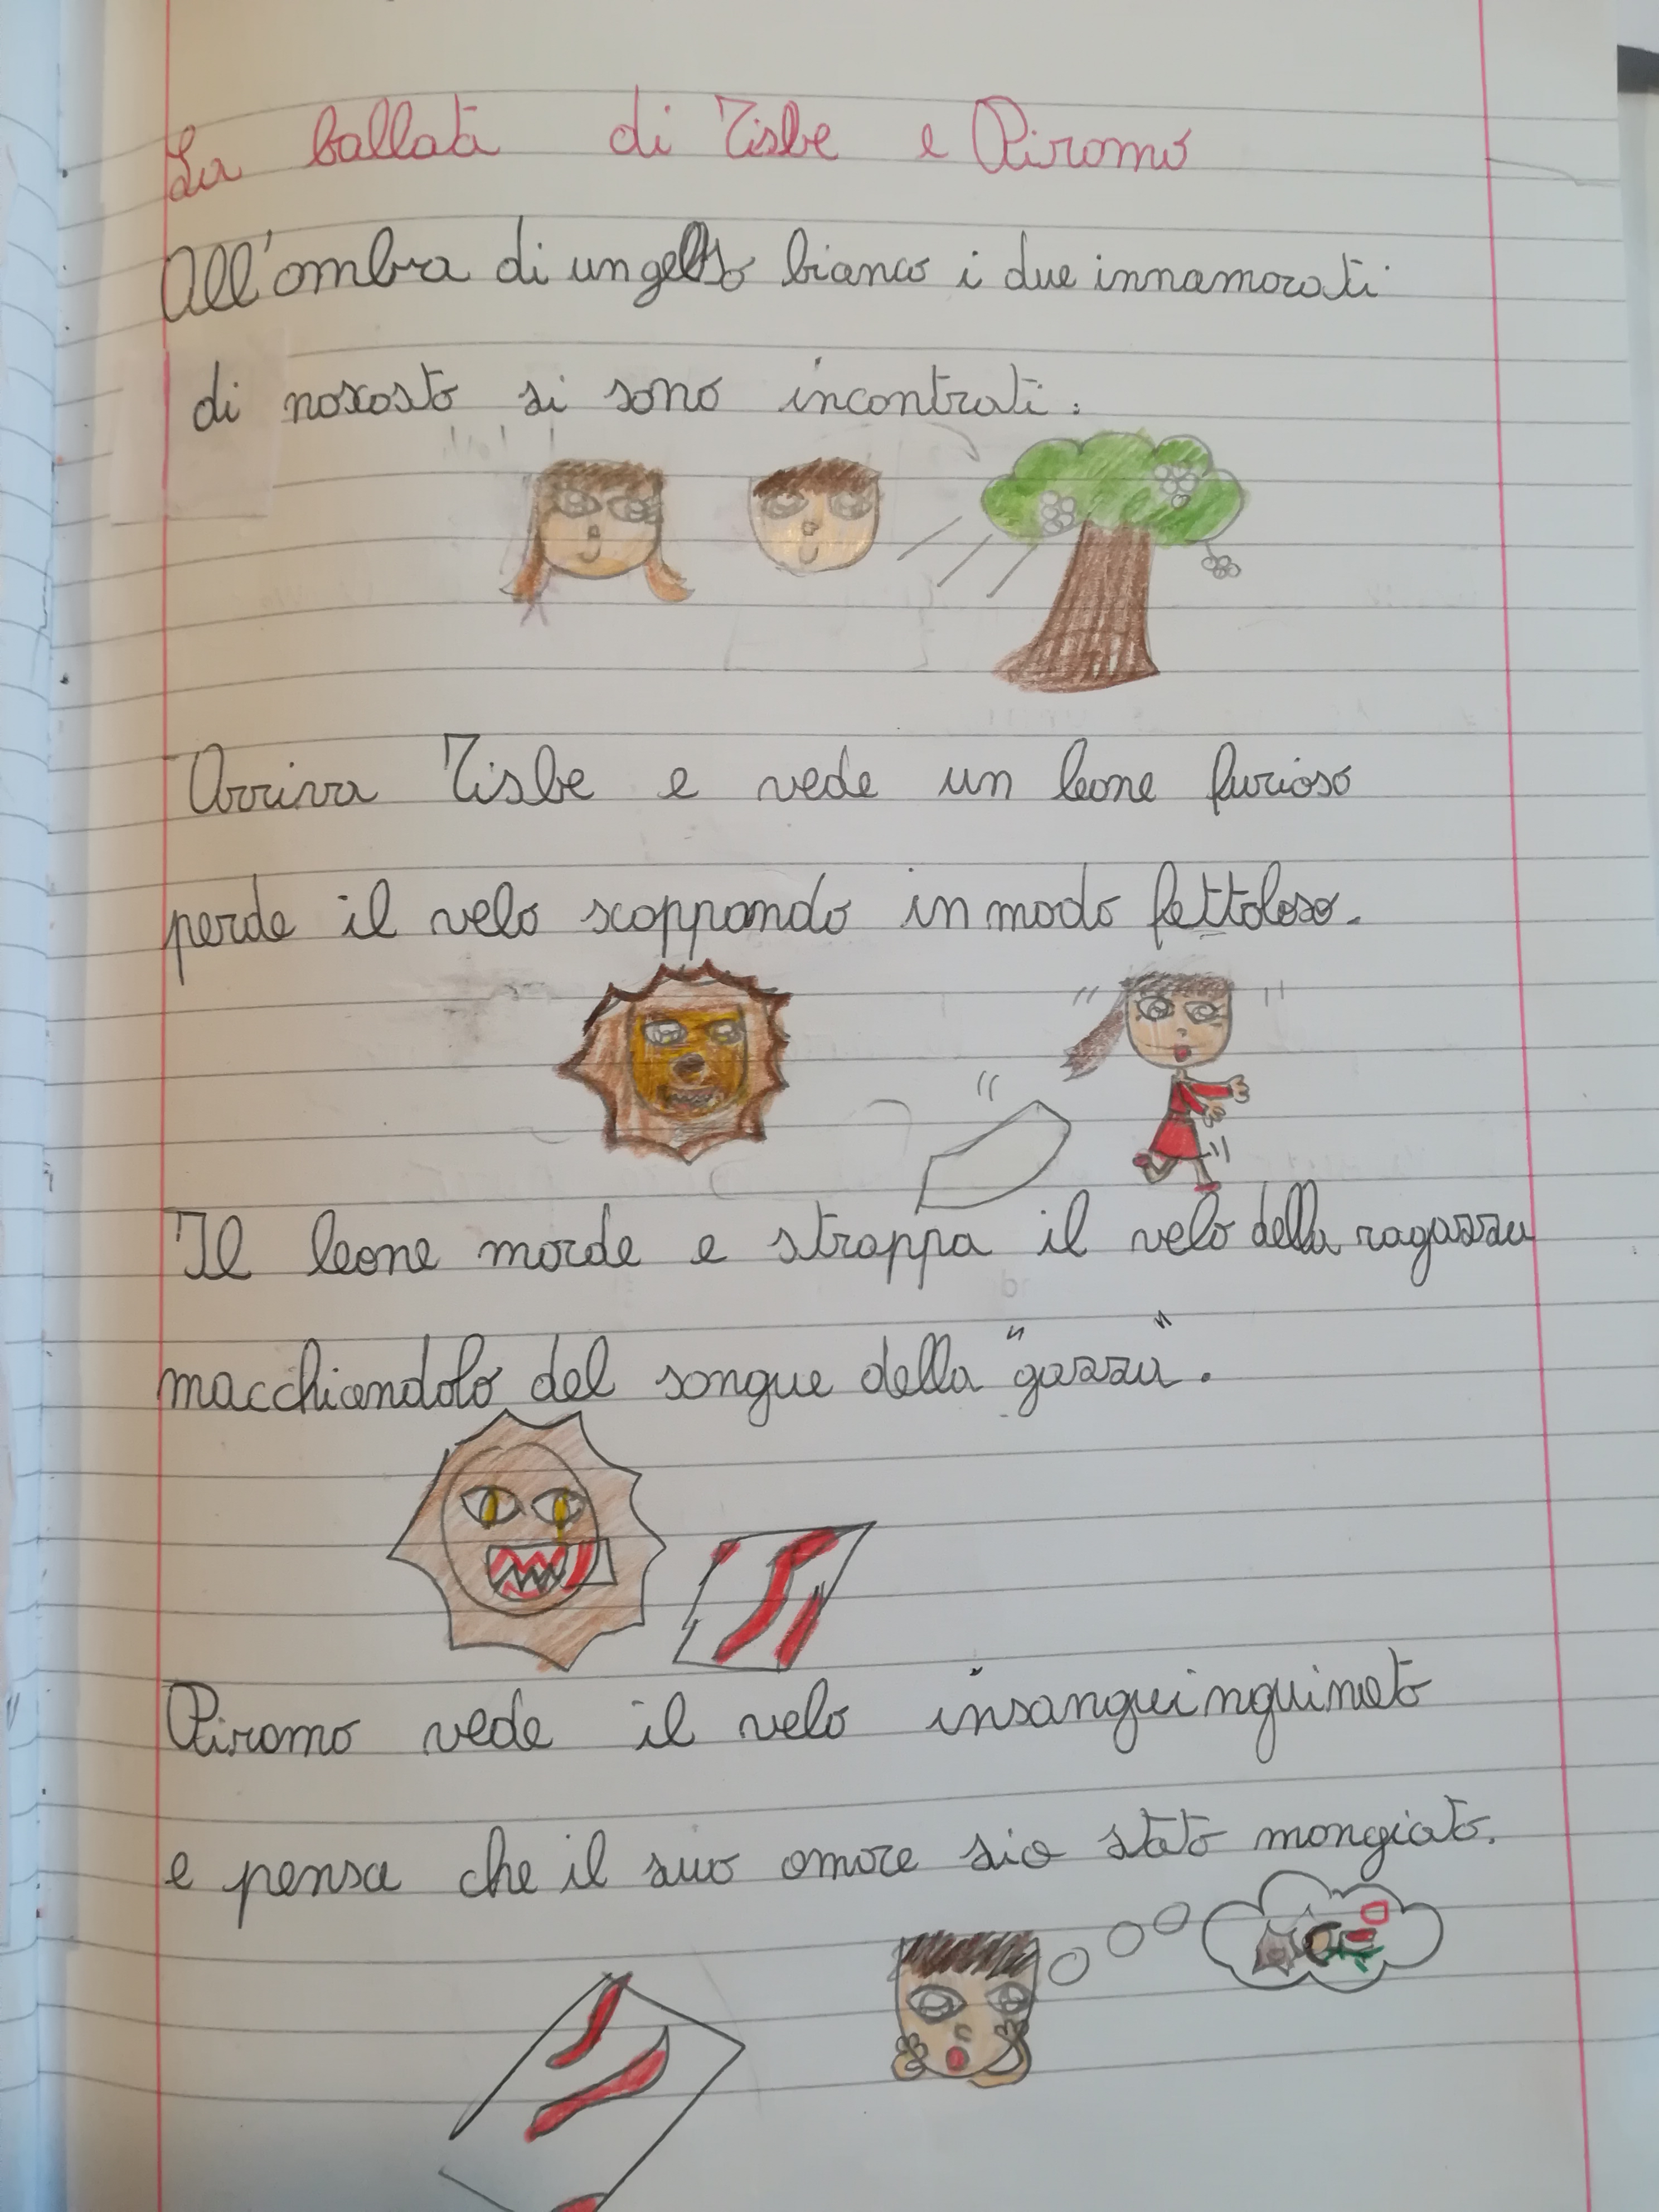 La ballata di Tisbe e Piramo
All'ombra di un gelso bianco i due innamorati
di nascosto si sono incontrati.
Arriva Tisbe e vede un leone furioso
perde il velo scappando in modo fettoloso.
Il leone morde e strappa il velo della ragazza
macchiandolo del sangue della "gazza".
Piramo vede il velo insanguinguinato
e pensa che il suo amore sia stato mangiato.